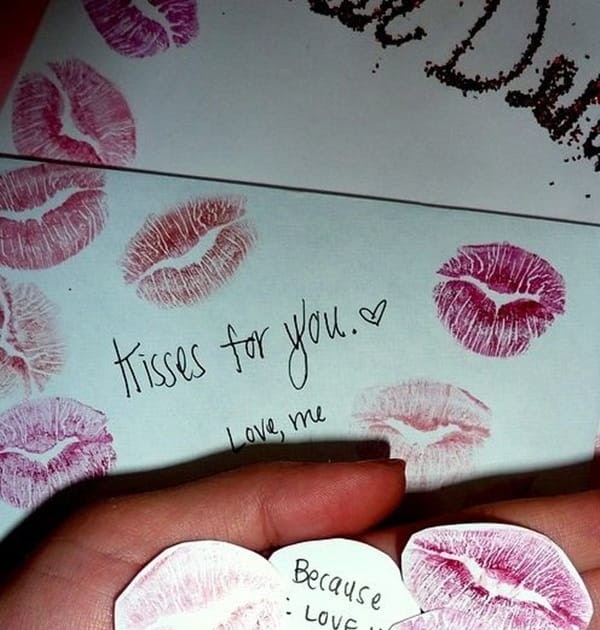 Kisses for you. ♡
Love, me
Because
I LOVE